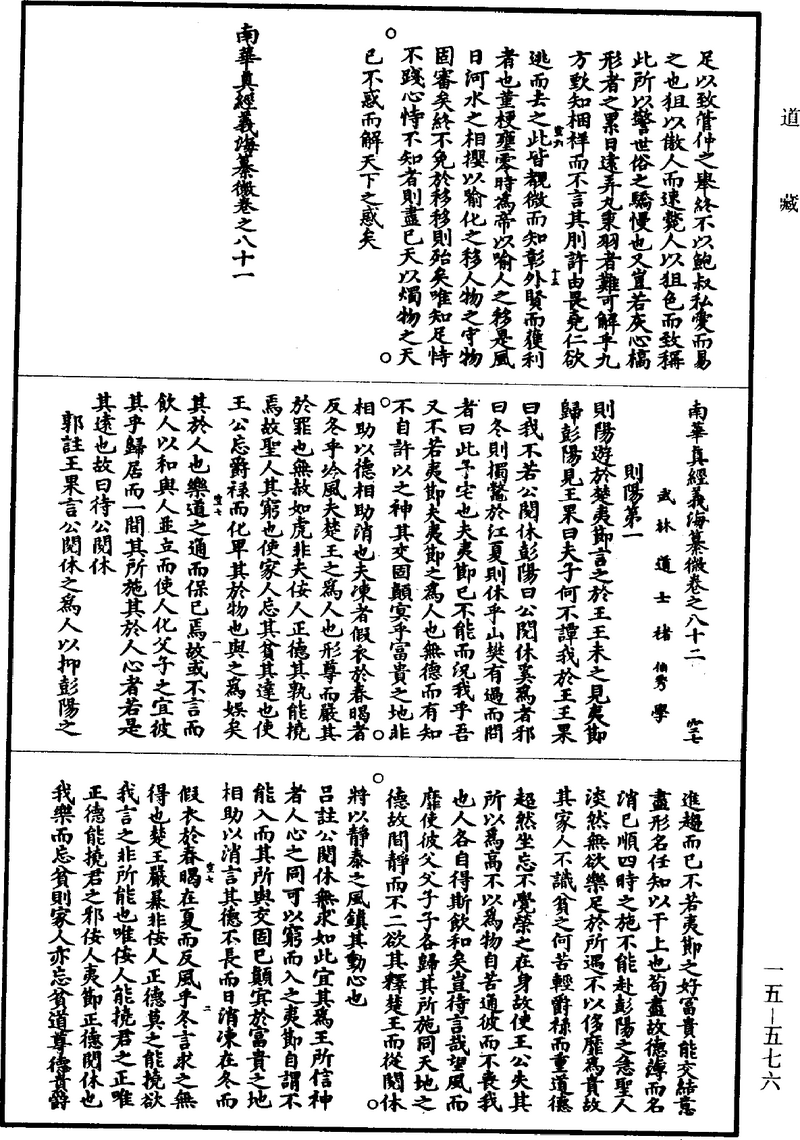 道藏
足以致管仲之舉終不以鮑叔私愛而易
之也狙以傲人而速斃人以狙色而致稱
此所以警世俗之驕慢也又豈若灰心槁
形者之累日遠弄丸秉羽者難可解乎九
方歅知梱祥而不言其刖許由畏堯仁欲
逃而去之此皆覩微而知彰外賢而獲利
者也菫梗壅零時為帝以喻人之移是風
日河水之相攖以喻化之移人物之守物
固審矣終不免於移移則殆矣唯知足恃
不踐心恃不知者則盡已天以燭物之天
已不惑而解天下之惑矣
南華真經義海纂微卷之八十一
南華真經義海纂微卷之八十二
武林道士褚伯秀學
則陽第一
則陽遊於楚夷節言之於王王未之見夷節
歸彭陽見王果曰夫子何不譚我於王王果
曰我不若公閱休彭陽曰公閱休奚為者邪
曰冬則擉鱉於江夏則休乎山樊有過而問
者曰此予宅也夫夷節已不能而況我乎吾
又不若夷節夫夷節之為人也無德而有知
不自許以之神其交固顛冥乎富貴之地非
相助以德相助消也夫凍者假衣於春暍者
反冬乎冷風夫楚王之為人也形尊而嚴其
於罪也無赦如虎非夫佞人正德其孰能撓
焉故聖人其窮也使家人忘其貧其達也使
王公忘爵祿而化卑其於物也與之為娛矣
其於人也樂道之通而保已焉故或不言而
飲人以和與人並立而使人化父子之宜彼
其乎歸居而一閒其所施其於人心者若是
其遠也故曰待公閱休
郭註王果言公閱休之為人以抑彭陽之
進趨而已不若夷節之好富貴能交結意
盡形名任知以干上也苟盡故德薄而名
消已順四時之施不能赴彭陽之急聖人
淡然無欲樂足於所遇不以侈靡為貴故
其家人不識貧之何苦輕爵祿而重道德
超然坐忘不覺榮之在身故使王公失其
所以為高不以為物自苦通彼而不喪我
也人各自得斯飲和矣豈待言哉望風而
靡使彼父父子子各歸其所施同天地之
德故閒靜而不二欲其釋楚王而從閱休
將以靜泰之風鎮其動心也
呂註公閱休無求如此宜其為王所信神
者人心之同可以窮而入之夷節自謂不
能入而其所與交固已顛冥於富貴之地
相助以消言其德不長而日消凍在冬而
假衣於春暍在夏而反風乎冬言求之無
得也楚王嚴暴非佞人正德莫之能撓欲
我言之非所能也唯佞人能撓君之正唯
正德能撓君之邪佞人夷節正德閱休也
我樂而忘貧則家人亦忘貧道尊德貴爵
一五—五七六